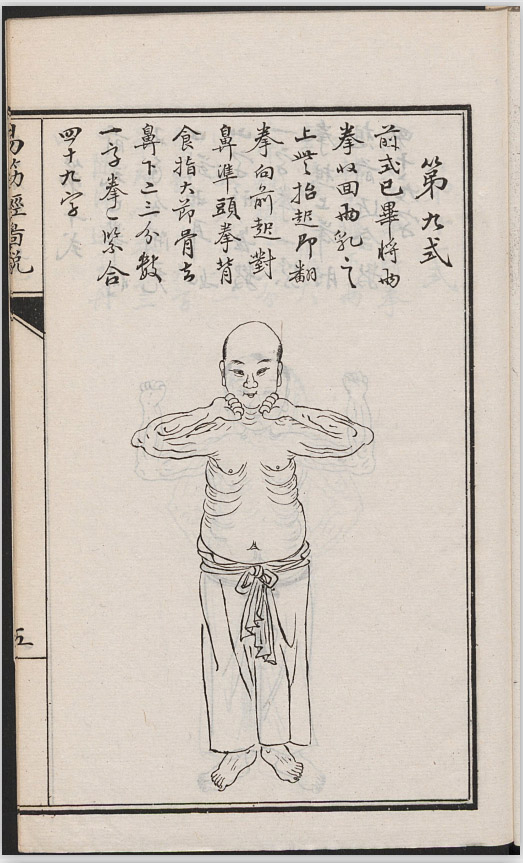 第九式
前式已畢將兩
拳收回兩乳之
上些抬起即翻
拳向前起對
鼻準頭拳背
食指大節骨去
鼻下二三分數
一字拳一緊合
四十九字
易筋經圖說
五